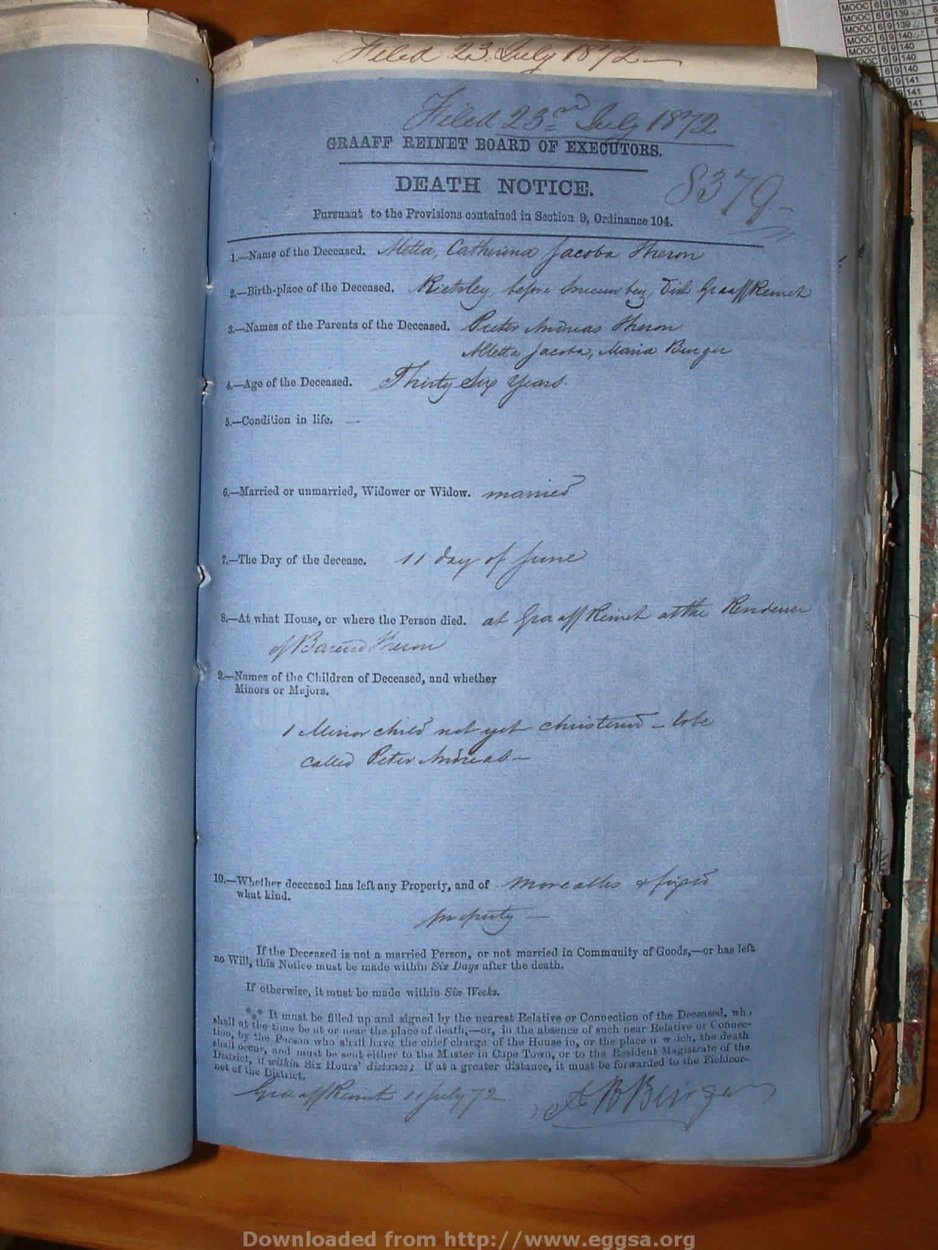 MOOC 6 9 138
MOOC 6 9 139
MOOC 6 9 139
MOOC 6 9 140
MOOC 6 9 140
6 9 140
6 9 141
9 141
Filed 23 July 1872
Filed 23rd July 1872
GRAAFF REINET BOARD OF EXECUTORS.
DEATH NOTICE.
8379
Pursuant to the Provisions contained in Section 9, Ordinance 104.
1.—Name of the Deceased. Aletta, Catherina Jacoba Theron
2.—Birth-place of the Deceased. before Dist Graaff Reinet
3.—Names of the Parents of the Deceased. Pieter Andreas Theron
Alletta Jacoba, Maria Burger
4.—Age of the Deceased. Thirty Six Years.
5.—Condition in life. —
6.—Married or unmarried, Widower or Widow. married
7.—The Day of the decease. 11 day of June
8.—At what House, or where the Person died. at Graaff Reinet at the Residence
of Barend Theron
9.—Names of the Children of Deceased, and whether
Minors or Majors.
1 Minor child not yet christened – to be
called Peter Andreas –
10.—Whether deceased has left any Property, and of
what kind. moveables & fixed
property —
If the Deceased is not a married Person, or not married in Community of Goods,—or has left
no Will, this Notice must be made within Six Days after the death.
If otherwise, it must be made within Six Weeks.
*** It must be filled up and signed by the nearest Relative or Connection of the Deceased, wh.
shall at the time be at or near the place of death,—or, in the absence of such near Relative or Connec-
tion, by the Person who shall have the chief charge of the House in, or the place n w.ich, the death
shall occur, and must be sent either to the Master in Cape Town, or to the Resident Magistrate of the
District, if within Six Hours' distance; if at a greater distance, it must be forwarded to the Fieldcor-
net of the District.
Graaff Reinet 11 July 72 Burger
Downloaded from http://www.eggsa.org